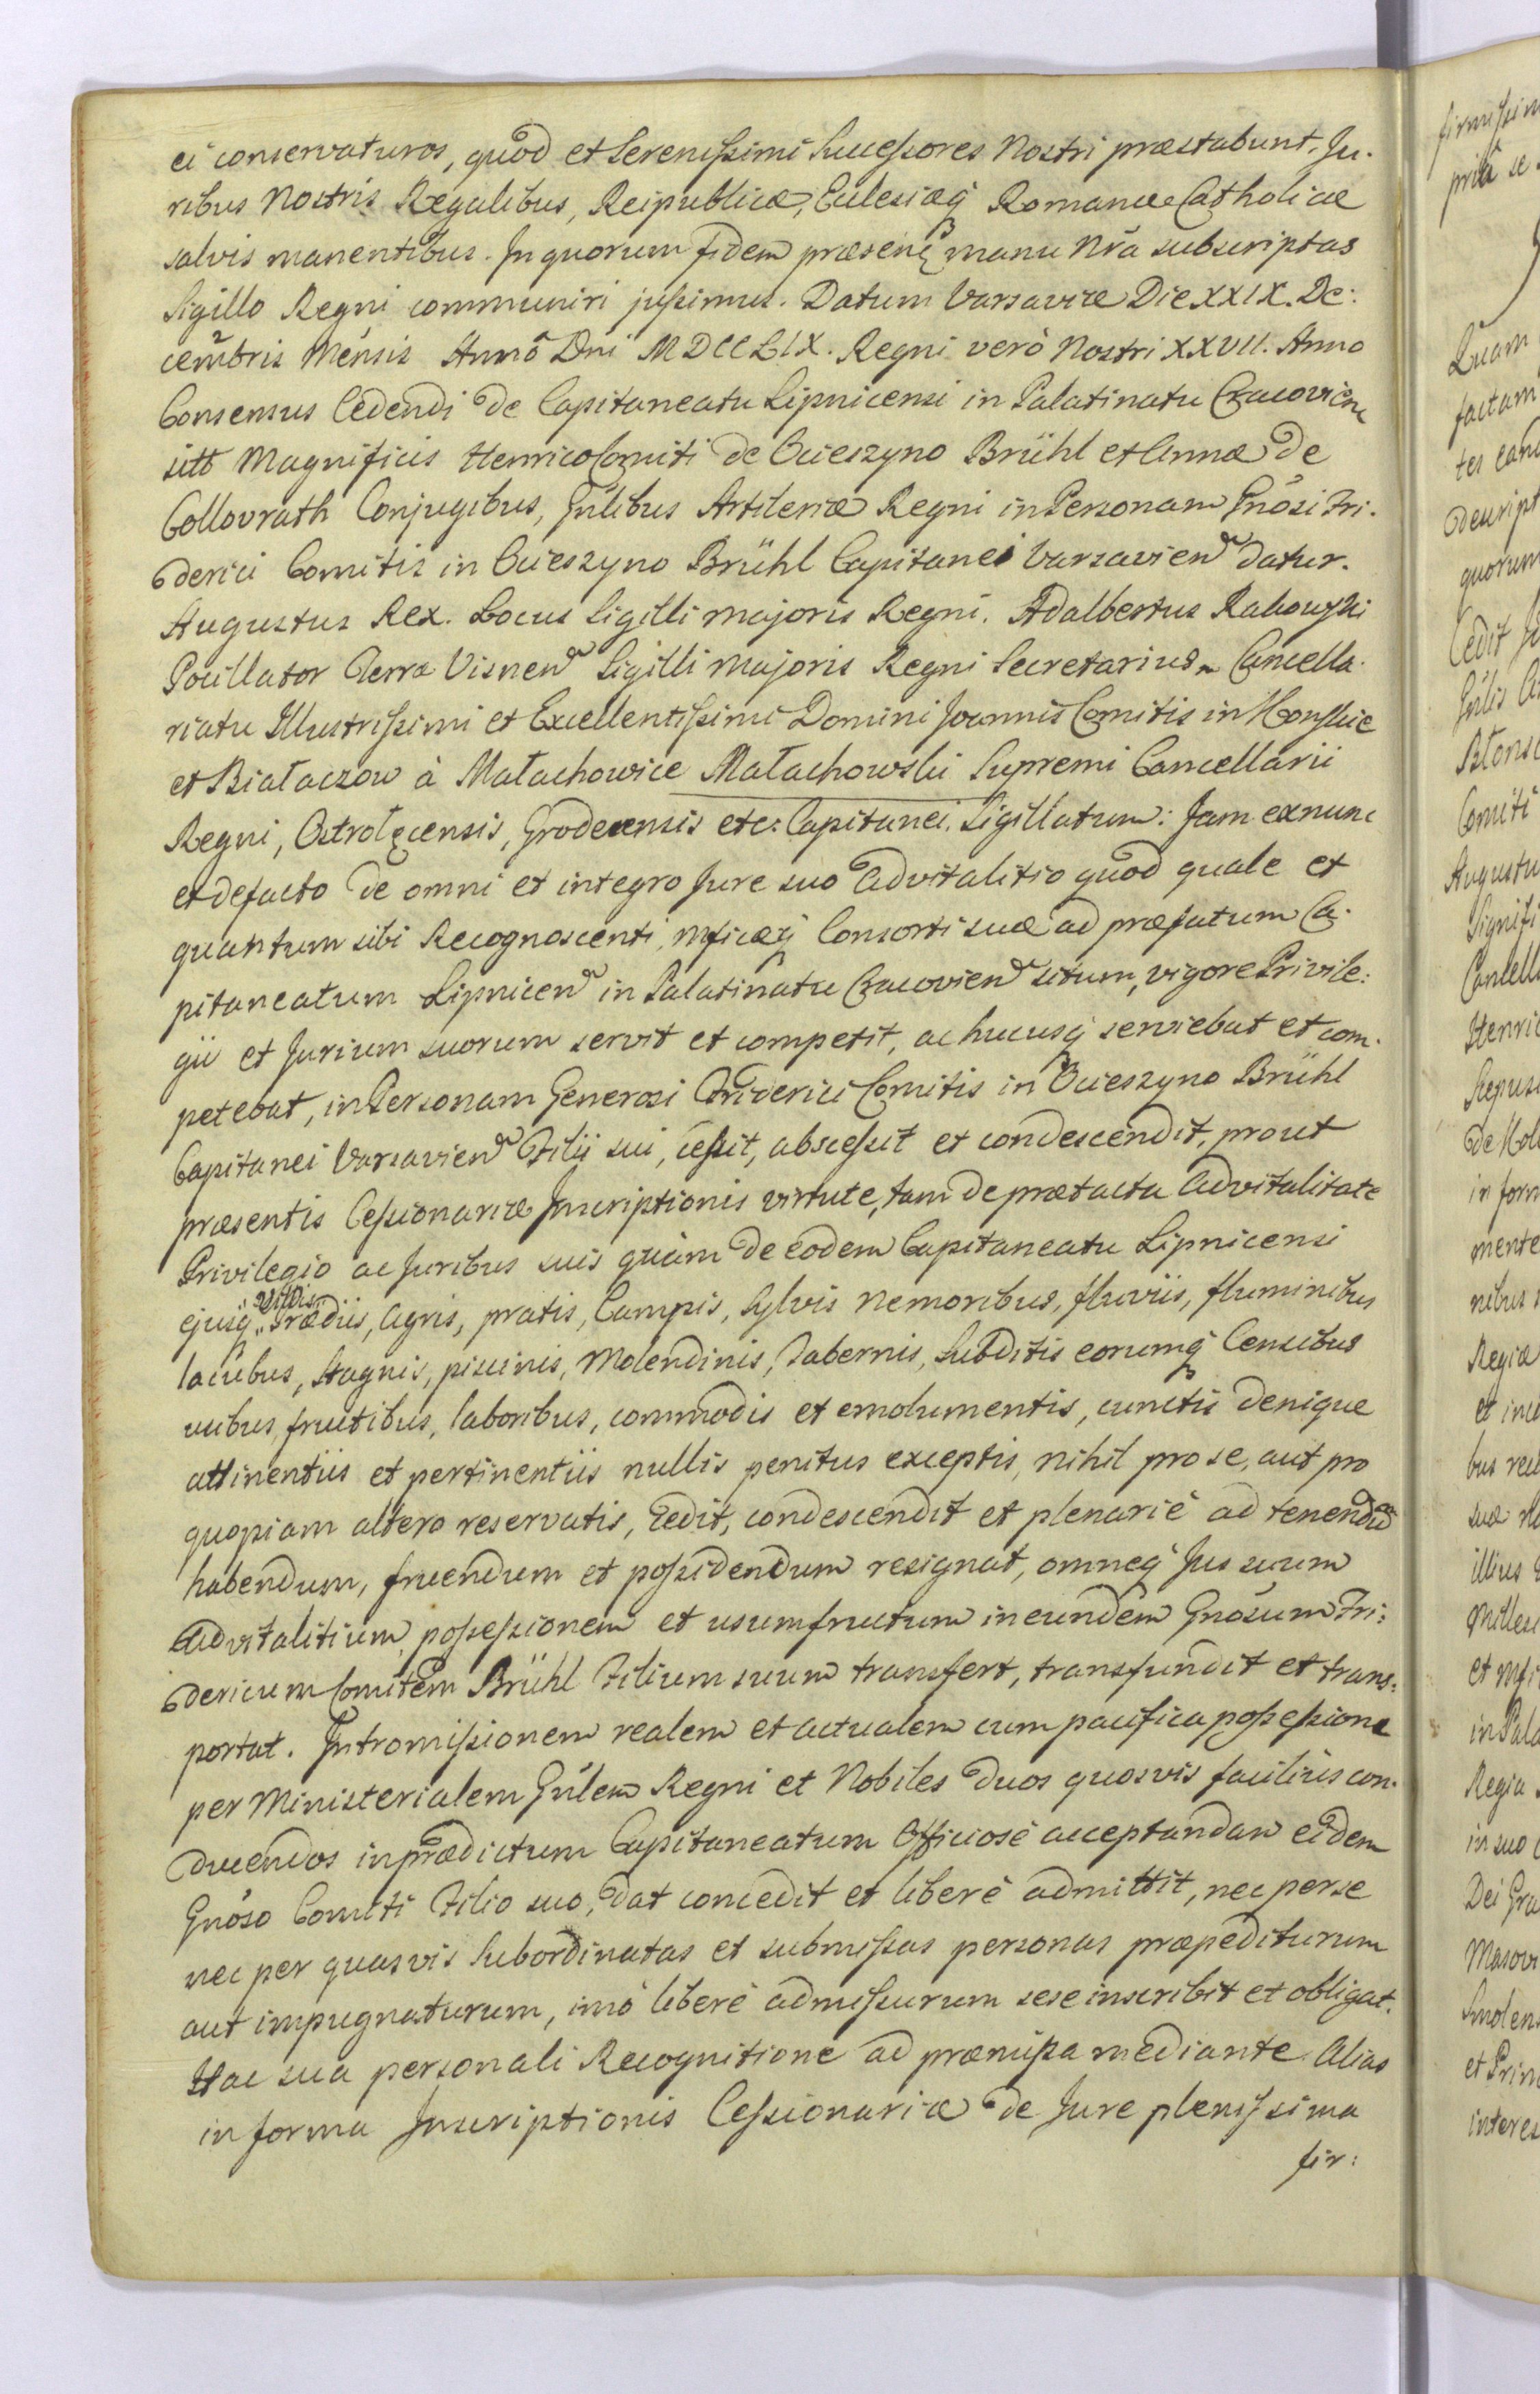 ei conservaturos, quod et Serenissimi Successores Nostri præstabunt. Ju.
ribus Nostris Regalibus, Reipublicæ, Ecclesiæq Romanæ Catholicæ
salvis manentibus. In quorum fidem præsens manu Nra subscriptas
Sigillo Regni communiri jussimus. Datum Varsaviæ Die XXIX. De:
cembris Mensis Anno Dni MDCCLIX. Regni verò Nostri XXVII. Anno
Consensus Cedendi de Capitaneatu Lipnicensi in Palatinatu Cracovien
sito Magnificis Henrico Comiti de Ocieszyno Brühl et Annæ De
Collovrath Conjugibus, Gńlibus Artileriæ Regni in Personam Gnosi Fri.
derici Comitis in Ocieszyno Brühl Capitanei Varsavien datur.
Augustus Rex. Locus Sigilli Majoris Regni. Adalbertus Rakowski
Pocillator Terræ Visnen Sigilli Majoris Regni Secretarius. Cancella.
riatu Illustrissimi et Excellentissimi Domini Joannis Comitis in Konskie
et Białaczow à Małachowice Małachowski Supremi Cancellarii
Regni, Ostrołęcensis, Grodecensis etc: Capitanei. Sigillatum: Jam ex nunc
et de facto de omni et integro Jure suo Advitalitio quod quale et
quantum sibi Recognoscenti, Mficæq Consorti suæ ad præfatum Ca.
pitaneatum Lipnicen in Palatinatu Cracovien situm, vigore Privile:
gii et Jurium suorum servit et competit, ac hucusq serviebat et com.
petebat, in Personam Generosi Friderici Comitis in Ocieszyno Brühl
Capitanei Varsavien Filii sui, cessit, abscessit et condescendit, prout
præsentis Cessionariæ Inscriptionis virtute, tam de prætacta Advitalitate
Privilegio ac Juribus suis quàm de eodem Capitaneatu Lipnicensi
ejusq Villis Prædiis, Agris, pratis, Campis, Sylvis Nemoribus, fluviis, fluminibus
lacubus, Stagnis, piscinis, Molendinis, Tabernis, Subditis eorumq Censibus
usibus, fructibus, laboribus, commodis et emolumentis, cunctis denique
attinentiis et pertinentiis nullis penitus exceptis, nihil pro se, aut pro
quopiam altero reservatis, Cedit, condescendit et plenariè ad tenendũ
habendum, fruendum et possidendum resignat, omneq Jus suum
Advitalitium, possessionem et usumfructum in eundem Gnosum Fri:
dericum Comitem Brühl Filium suum transfert, transfundit et trans:
portat. Intromissionem realem et actualem cum pacifica possessione
per Ministerialem Gńlem Regni et Nobiles duos quosvis faciliùs con.
ducendos in prædictum Capitaneatum Officiosè acceptandam eidem
Gnoso Comiti Filio suo, dat concedit et liberè admittit, nec per se
nec per quasvis Subordinatas et submissas personas præpediturum
aut impugnaturum, imò liberè admissurum sese inscribit et obligat.
Hac sua personali Recognitione ad præmissa mediante. Alias
in forma Inscriptionis Cessionariæ de Jure plenissima
fir: